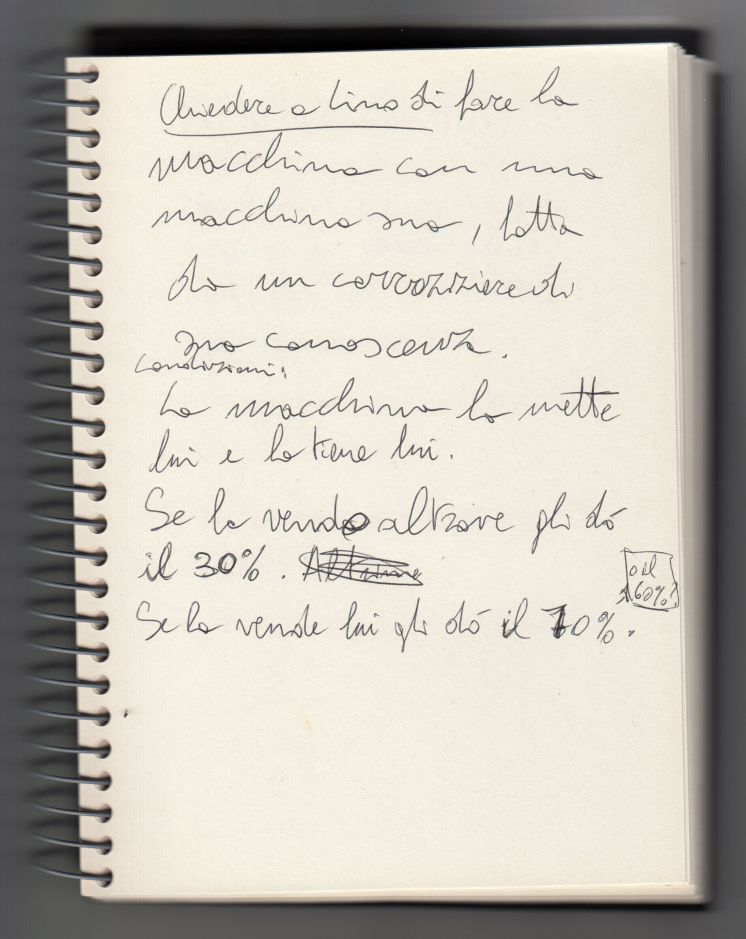 Chiedere a Lino di fare la
macchina con una
macchina sua, fatta
da un carrozziere di
sua conoscenza.
Condizioni:
La macchina la mette
lui e la tiene lui.
Se la vendo altrove gli dó
il 30%.
o il 60%?
Se la vende lui gli dó il 70%.